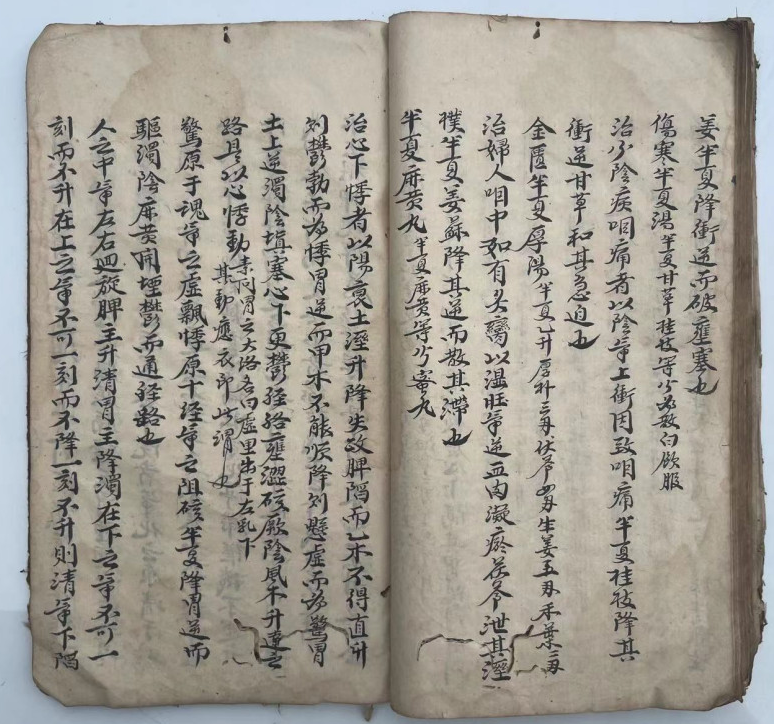 姜半夏降衝逆而破壅塞也
傷寒半夏湯半夏甘草桂枝等分為散白飲服
治少陰疾咽痛者以陰氣上衝因致咽痛半夏桂枝降其
衝逆甘草和其急迫也
金匱半夏厚湯半夏乙升厚朴三両伏苓四両生姜五両禾葉二両
治婦人咽中如有炙臠以湿旺氣逆血肉凝瘀茯苓泄其溼
樸半夏姜蘇降其逆而散其滯也
半夏麻黄丸半夏麻黄等分蜜丸
治心下悸者以陽衰土溼升降失政脾陷而乙木不得直升
則鬱勃而為悸胃逆而甲木不能順降則懸虛而為驚胃
土上逆濁陰填塞心下更鬱経絡壅澀碍厥陰風木升達之
路是以心悸動素问胃之大洛名曰虛里出于左乳下其動應衣即此謂也
驚原于魂氣之虛飄悸原于経氣之阻碍半夏降胃逆而
驅濁陰麻黄開堙鬱而通経路也
人之中氣左右廻旋脾主升清胃主降濁在下之氣不可一
刻而不升在上之氣不可一刻而不降一刻不升則清氣下陷